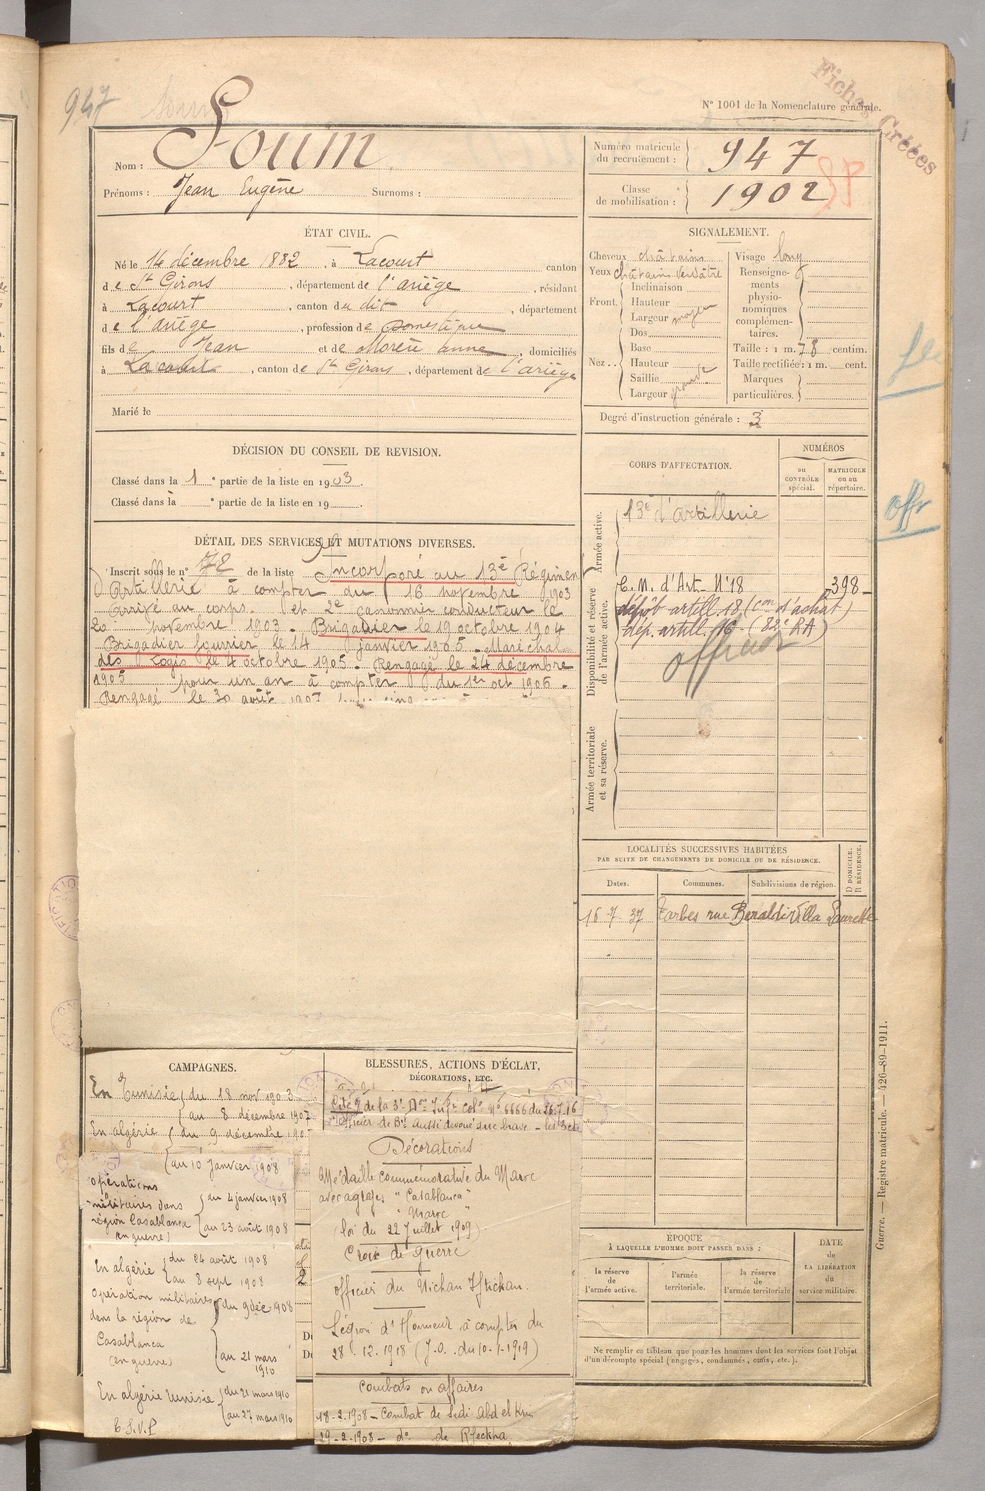 947
N° 1001 de la Nomenclature générale.
Fiches Créées
Nom : Souim
Prénoms : Jean Eugène Surnoms :
Numéro matricule du recrutement : 947
Classe de mobilisation : 1902
ÉTAT CIVIL.
Né le 14 décembre 1882, à Lacourt canton
de St Girons, département de l'ariège, résidant
à Lacourt, canton du dit, département
de l'ariège, profession de domestique
fils de Jean et de Morère anne, domiciliés
à Lacourt, canton de St Girons, département de l'ariège
Marié le
SIGNALEMENT.
Cheveux châtains
Yeux châtains verdâtre
Front. Inclinaison
Hauteur
Largeur moyen
Nez.. Dos
Base
Hauteur
Saillie
Largeur
Visage long
Renseignements physionomiques complémentaires.
Taille : 1 m. 78 centim.
Taille rectifiée : 1 m. cent.
Marques particulières.
Degré d'instruction générale : 3
DÉCISION DU CONSEIL DE REVISION.
Classé dans la 1e partie de la liste en 1903.
Classé dans la e partie de la liste en 19 .
DÉTAIL DES SERVICES ET MUTATIONS DIVERSES.
Inscrit sous le n° 72 de la liste Incorporé au 13e Régiment
d'Artillerie à compter du 16 novembre 1903
Arrivé au corps et 2e canonnier conducteur le
20 novembre 1903. Brigadier le 19 octobre 1904
Brigadier fourrier le 14 janvier 1905. Maréchal
des Logis le 4 octobre 1905. Rengagé le 24 décembre
1905 pour un an à compter du 1er oct 1906.
Rengagé le 30 août 1907
CORPS D'AFFECTATION.
NUMÉROS
au CONTRÔLE spécial.
MATRICULE ou au répertoire.
Armée active.
13e d'artillerie
Disponibilité et réserve de l'armée active.
C. M. d'Art. N° 18 398
dépôt artill. 18 (com d'achat)
dép. artill. 16 (82e RA)
officier
offr
Armée territoriale et sa réserve.
LOCALITÉS SUCCESSIVES HABITÉES
PAR SUITE DE CHANGEMENTS DE DOMICILE OU DE RÉSIDENCE.
Dates. Communes. Subdivisions de région. D DOMICILE. R RÉSIDENCE.
16-7-37 Tarbes rue Beraldi Villa Laurette
CAMPAGNES.
En Tunisie du 18 nov 1903
au 8 décembre 1907
En algérie du 9 décembre 190
au 10 janvier 1908
opérations militaires dans région Casablanca (en guerre)
au 4 janvier 1908
au 23 août 1908
En algérie du 24 août 1908
au 8 sept 1908
opération militaires dans la région de Casablanca (en guerre)
du 9 déc 1908
au 21 mars 1910
En algérie tunisie du 21 mars 1910
au 27 mars 1910
T.S.V.P
BLESSURES, ACTIONS D'ÉCLAT,
DÉCORATIONS, ETC.
Cité de la 3e Don Infie colo N° 6666 du 26.7.16
officier de Bie aussi dévoué que brave
Décorations
Médaille commémorative du Maroc
avec agrafe "Casablanca"
" Maroc "
(loi du 22 juillet 1909)
Croix de guerre
officier du Nichan Iftichan.
Légion d'Honneur à compter du
28.12.1918 (J.O. du 10-1-1919)
Combats ou affaires
18-2-1908 - Combat de Sidi Abd el Krim
29-2-1908 - do de Rfackha
ÉPOQUE
À LAQUELLE L'HOMME DOIT PASSER DANS :
la réserve de l'armée active.
l'armée territoriale.
la réserve de l'armée territoriale
DATE de LA LIBÉRATION du service militaire.
Ne remplir ce tableau que pour les hommes dont les services font l'objet
d'un décompte spécial (engagés, condamnés, omis, etc.).
Guerre. — Registre matricule. — 426-89-1911.